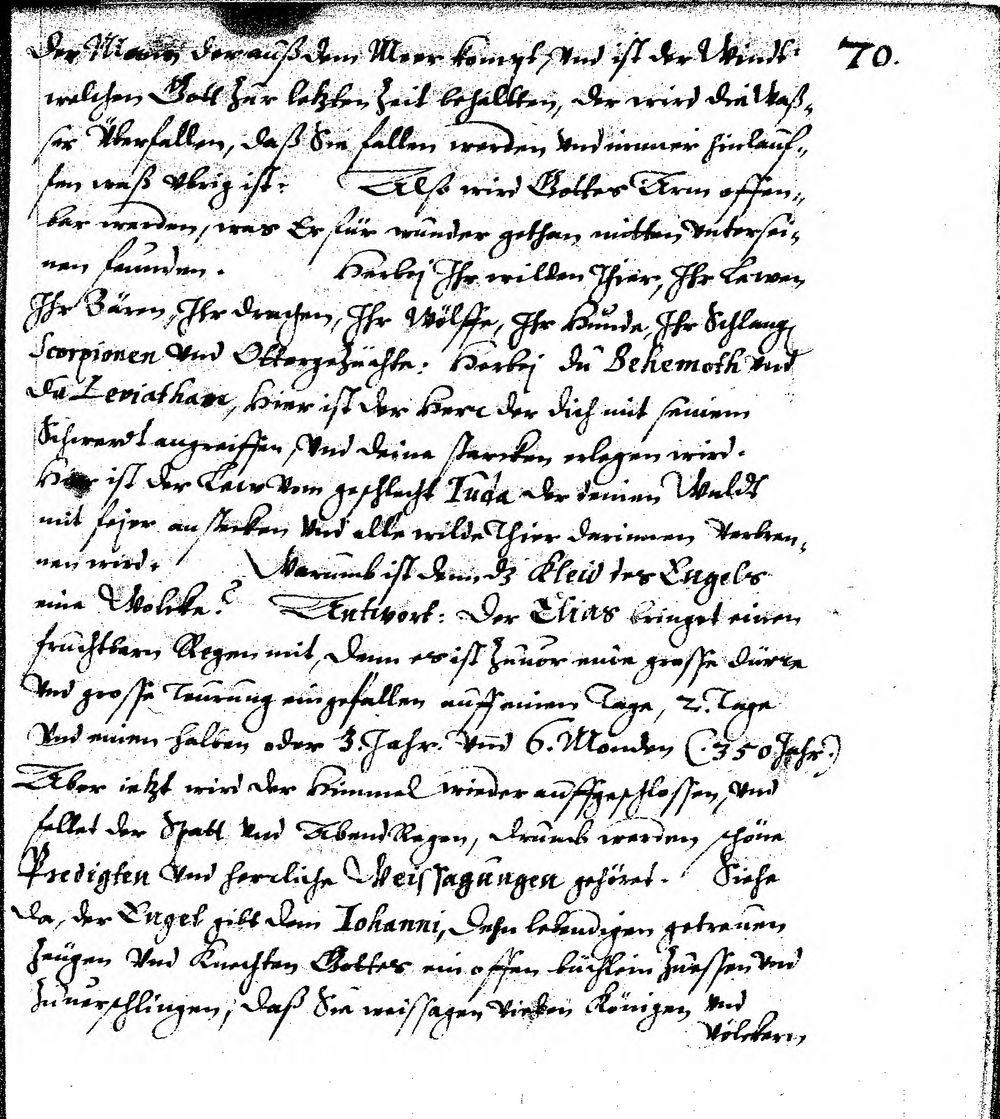 70.
Der Mann der auß dem Meer kompt, Vnd ist der Windt
welchen Gott zur letzten Zeit behaltten, der wird die Waß„
ser Überfallen, daß Sie fallen werden Vnd immer hinlauf„
fen waß Vbrig ist. Alß wird Gottes Arm offen„
bar werden, was Er für wunder gethan mitten Vnter sei„
nen feinden. Herbej Ihr wilden Thier, Ihr Lewen
Ihr Bären, Ihr drachen, Ihr Wölffe, Ihr Hunde, Ihr Schlang
Scorpionen Vnd Ottergezüchte: Herbej du Behemoth Vnd
du Leviathan, Hier ist der Herr der dich mit seinem
Schwerdt angreiffen, Vnd deine starcken erlegen wird.
Hier ist der Lew vom geschlecht Iuda der deinen Waldt
mit fejer anstecken Vnd alle wilde Thier darinnen Verbren„
nen wird. Warumb ist denn dz Kleid des Engels
eine Wolcke? Antwort: Der Elias bringet einen
fruchtbarn Regen mit, denn es ist zuuor eine grosse dürre
Vnd grosse Teurung eingefallen auff einen Tage, 2. Tage
Vnd einen halben oder 3. Jahr. Vnd 6. Monden (.350 Jahr.)
Aber ietzt wird der Himmel wieder auffgeschlossen, Vnd
fellet der Spatt Vnd Abend Regen, drumb werden schöne
Predigten Vnd herrliche Weissagungen gehöret. Siehe
da, der Engel gibt dem Iohanni, dehn lebendigen getreuen
Zeugen Vnd Knechten Gottes ein offen büchlein Zuessen Vnd
Zuuerschlingen, daß Sie weissagen Vielen Königen Vnd
Völckern